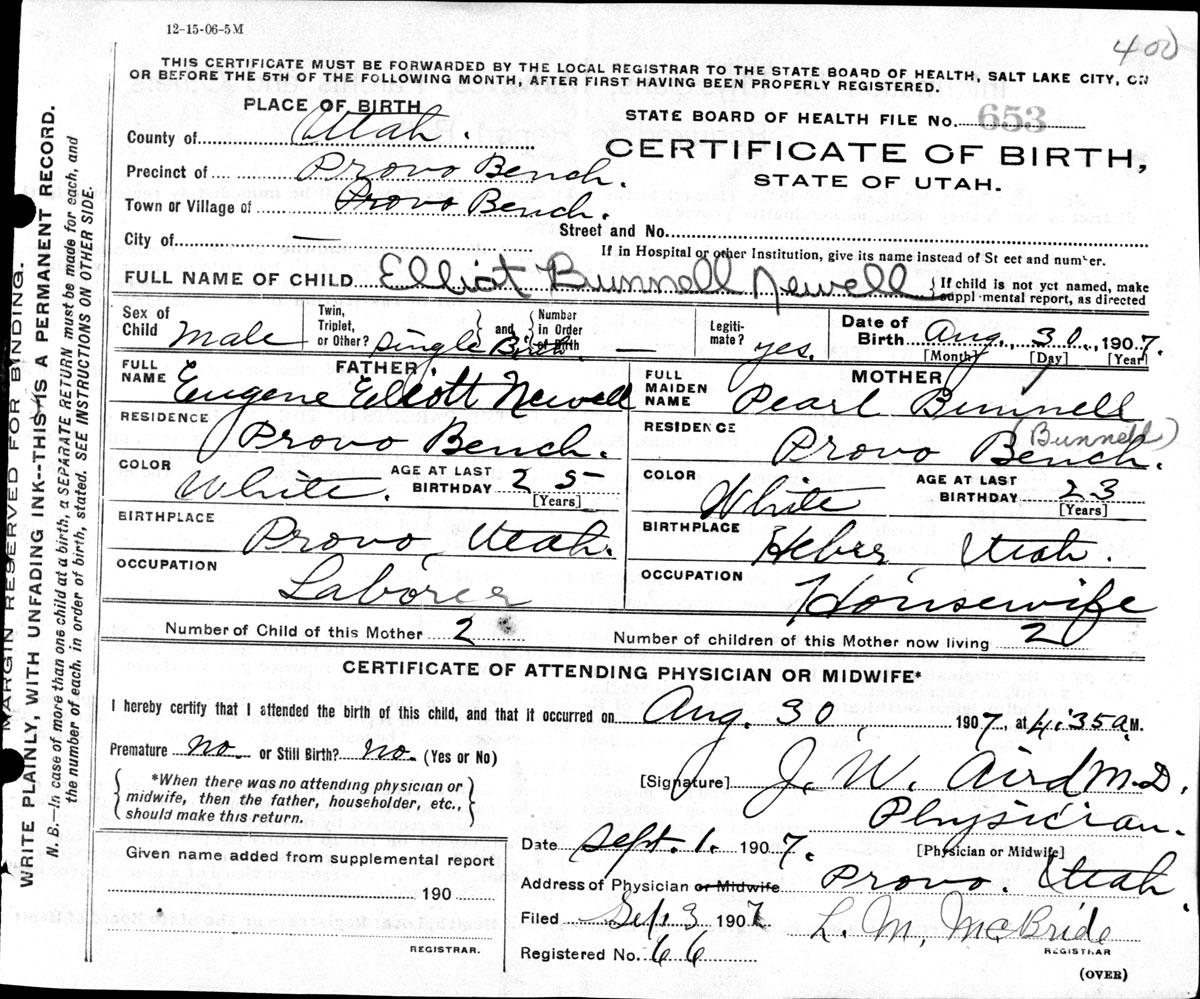 12-15-06-5M
400
THIS CERTIFICATE MUST BE FORWARDED BY THE LOCAL REGISTRAR TO THE STATE BOARD OF HEALTH, SALT LAKE CITY, ON
OR BEFORE THE 5TH OF THE FOLLOWING MONTH, AFTER FIRST HAVING BEEN PROPERLY REGISTERED.
PLACE OF BIRTH
STATE BOARD OF HEALTH FILE No. 653
County of Utah.
CERTIFICATE OF BIRTH,
STATE OF UTAH.
Precinct of Provo Bench.
Town or Village of Provo Bench.
Street and No.
City of —
If in Hospital or other Institution, give its name instead of St eet and number.
FULL NAME OF CHILD Elliot Bunnell Newell { If child is not yet named, make
suppl mental report, as directed
Sex of Child male
Twin, Triplet, or Other? single Birth. } and { Number in Order of Birth —
Legitimate? yes.
Date of Birth Aug. 30., 1907.
[Month] [Day] [Year]
FATHER
FULL NAME Eugene Elliott Newell
MOTHER
FULL MAIDEN NAME Pearl Bunnell
(Bunnell)
RESIDENCE Provo Bench.
RESIDENCE Provo Bench.
COLOR White. AGE AT LAST BIRTHDAY 25 [Years]
COLOR White AGE AT LAST BIRTHDAY 23 [Years]
BIRTHPLACE Provo, Utah.
BIRTHPLACE Heber, Utah.
OCCUPATION Laborer
OCCUPATION Housewife
Number of Child of this Mother 2
Number of children of this Mother now living 2
CERTIFICATE OF ATTENDING PHYSICIAN OR MIDWIFE*
I hereby certify that I attended the birth of this child, and that it occurred on Aug. 30 1907, at 4:35 a.M.
Premature no. or Still Birth? no. (Yes or No)
*When there was no attending physician or
midwife, then the father, householder, etc.,
should make this return.
[Signature] J. W. Aird M.D.
Physician.
[Physician or Midwife]
Date Sept. 1. 1907.
Given name added from supplemental report
190
REGISTRAR.
Address of Physician or Midwife Provo. Utah.
Filed Sep. 3 1907 L. M. McBride
REGISTRAR
Registered No. 66
(OVER)
MARGIN RESERVED FOR BINDING.
WRITE PLAINLY, WITH UNFADING INK--THIS IS A PERMANENT RECORD.
N. B.—In case of more than one child at a birth, a SEPARATE RETURN must be made for each, and
the number of each. in order of birth, stated. SEE INSTRUCTIONS ON OTHER SIDE.